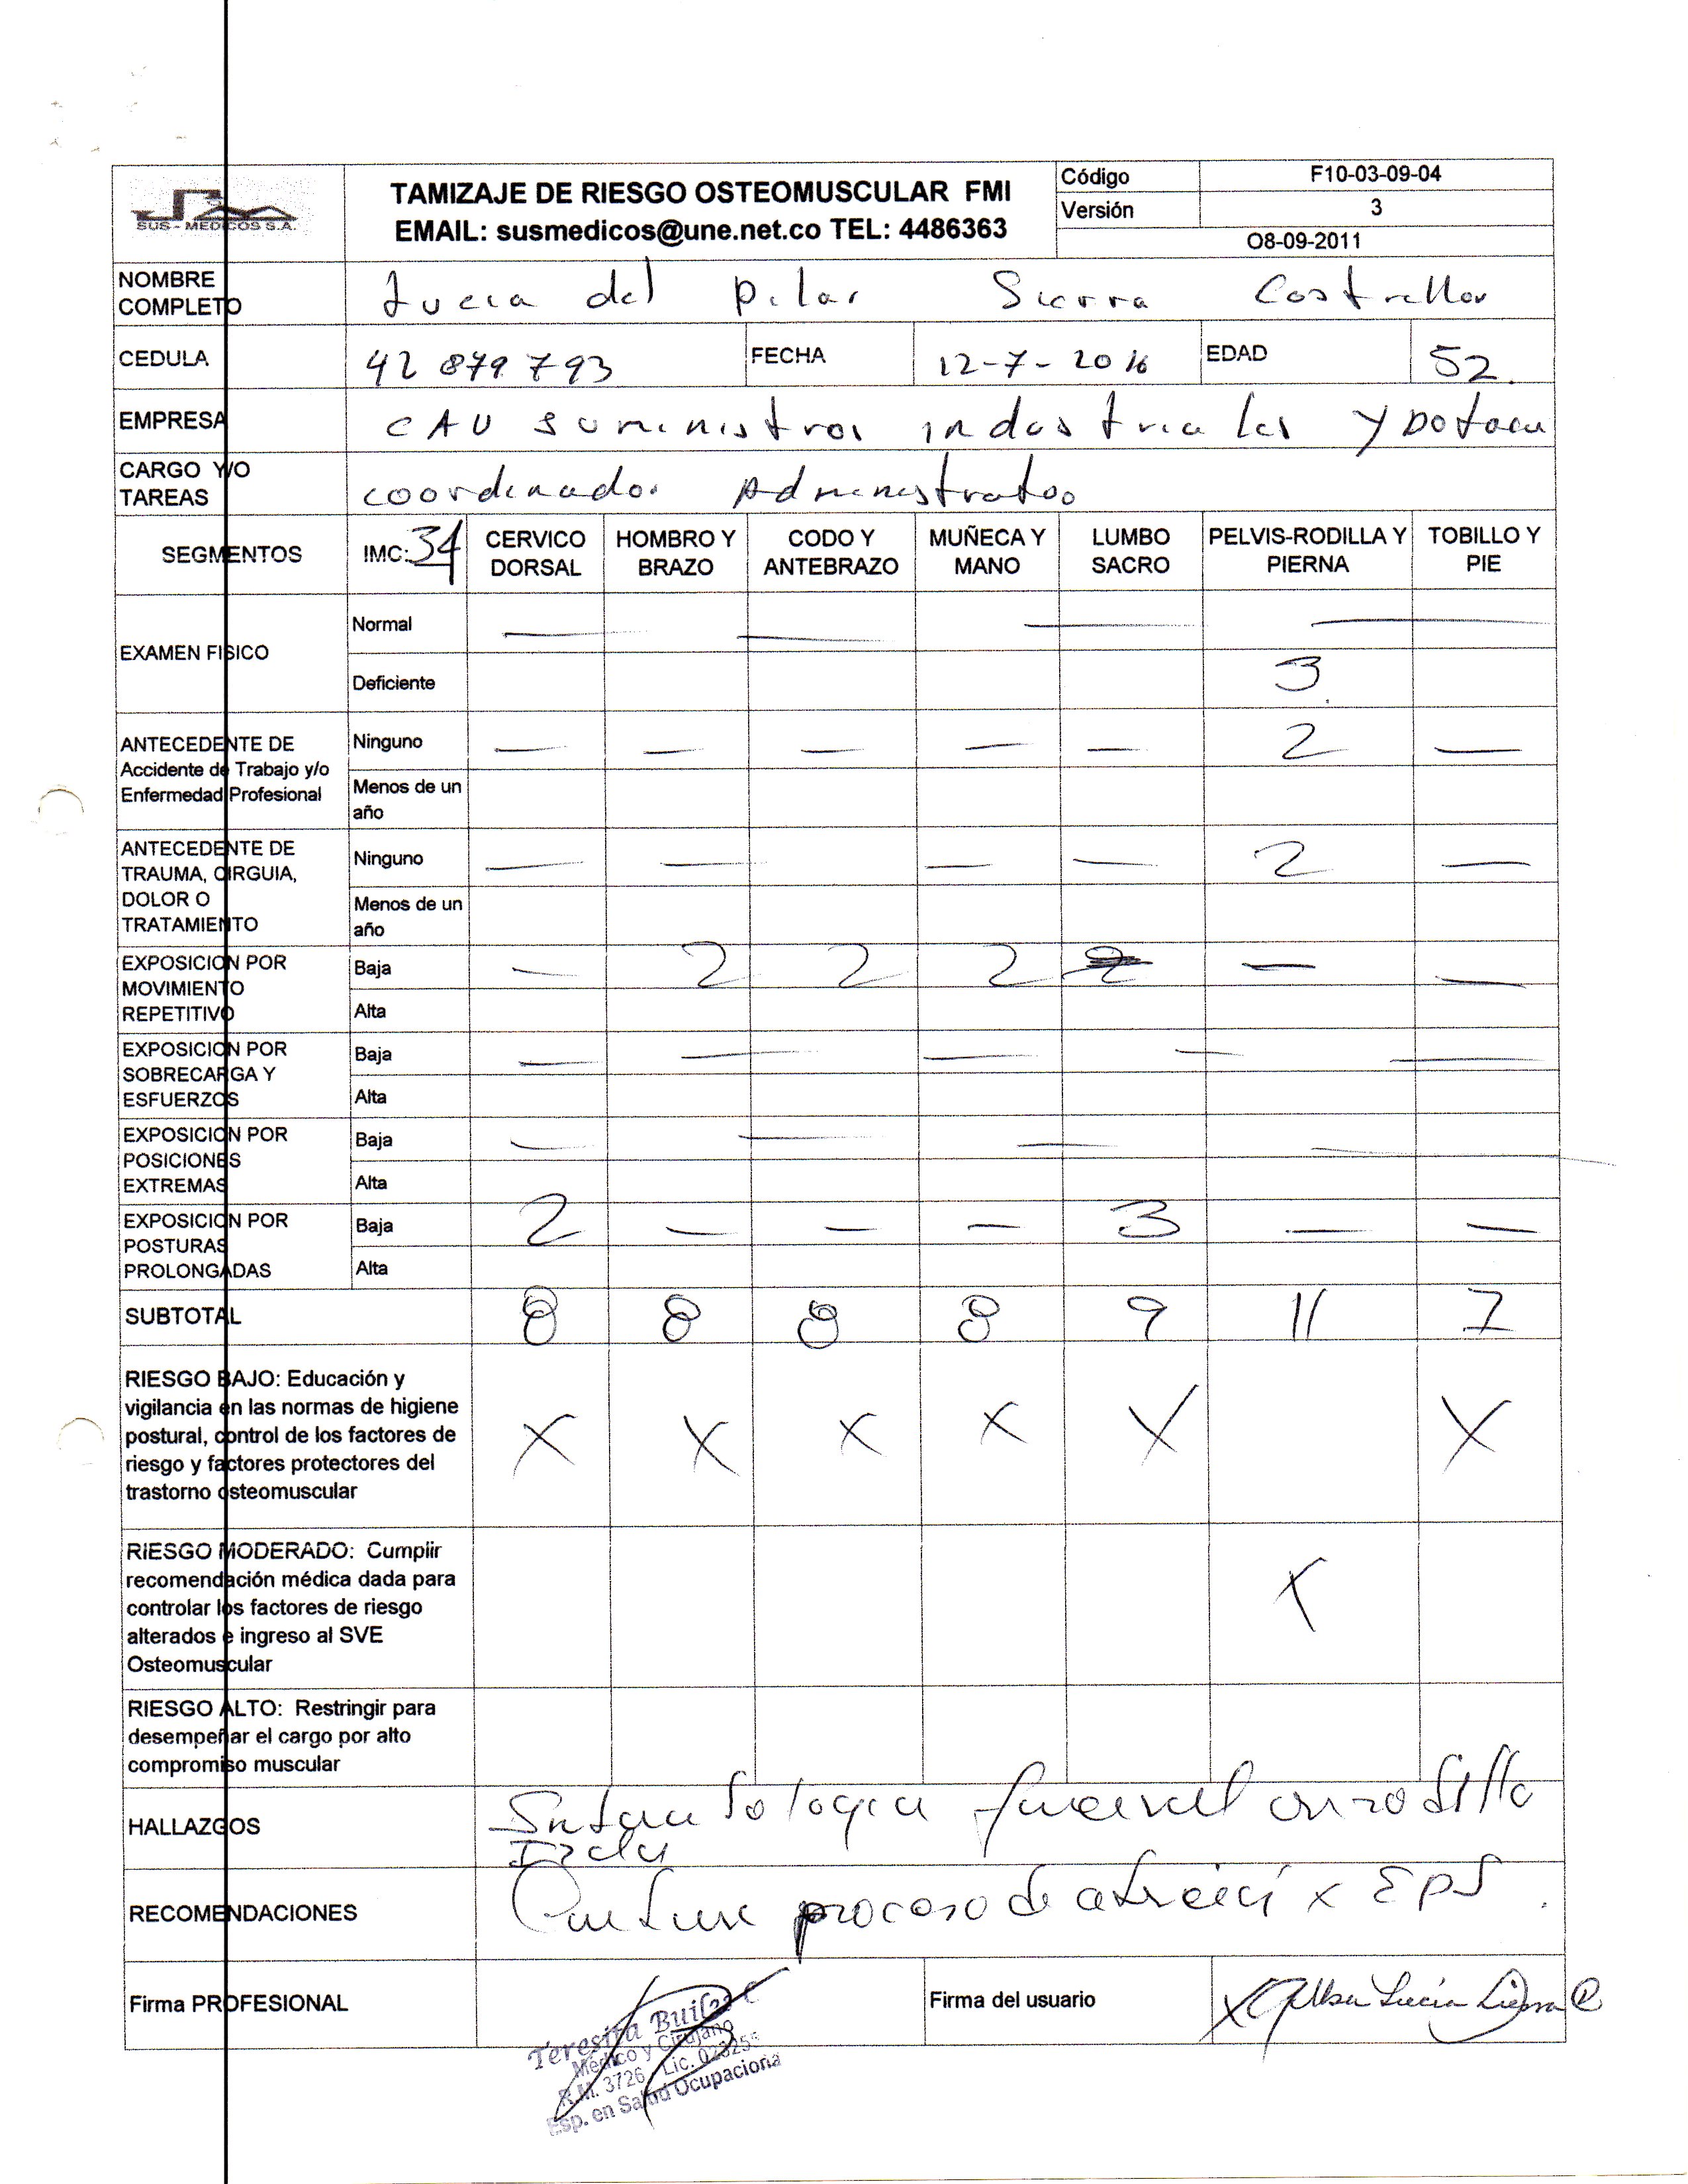 SUS - MEDICOS S.A.
TAMIZAJE DE RIESGO OSTEOMUSCULAR FMI
EMAIL: susmedicos@une.net.co TEL: 4486363
Código F10-03-09-04
Versión 3
O8-09-2011
NOMBRE COMPLETO del Pilar Sierra
CEDULA 42 879 793 FECHA 12-7-2016 EDAD 52.
EMPRESA CAU suministros industriales y Dotacu
CARGO Y/O TAREAS coordinador Administrativo
SEGMENTOS IMC: 34 CERVICO DORSAL HOMBRO Y BRAZO CODO Y ANTEBRAZO MUÑECA Y MANO LUMBO SACRO PELVIS-RODILLA Y PIERNA TOBILLO Y PIE
EXAMEN FISICO Normal — — — —
Deficiente 3.
ANTECEDENTE DE Accidente de Trabajo y/o Enfermedad Profesional Ninguno — — — — — 2 —
Menos de un año
ANTECEDENTE DE TRAUMA, CIRGUIA, DOLOR O TRATAMIENTO Ninguno — — — — 2 —
Menos de un año
EXPOSICION POR MOVIMIENTO REPETITIVO Baja — 2 2 2 — —
Alta
EXPOSICION POR SOBRECARGA Y ESFUERZOS Baja — — — — —
Alta
EXPOSICION POR POSICIONES EXTREMAS Baja — — — —
Alta
EXPOSICION POR POSTURAS PROLONGADAS Baja 2 — — — 3 — —
Alta
SUBTOTAL 8 8 8 8 9 11 7
RIESGO BAJO: Educación y vigilancia en las normas de higiene postural, control de los factores de riesgo y factores protectores del trastorno osteomuscular X X X X X X
RIESGO MODERADO: Cumplir recomendación médica dada para controlar los factores de riesgo alterados e ingreso al SVE Osteomuscular X
RIESGO ALTO: Restringir para desempeñar el cargo por alto compromiso muscular
HALLAZGOS en rodilla
RECOMENDACIONES proceso de x EPS.
Firma PROFESIONAL
Teresita Builes C
Médico y Cirujano
R.M. 3726 Lic.
Esp. en Salud Ocupacional
Firma del usuario X Lucia Sierra C